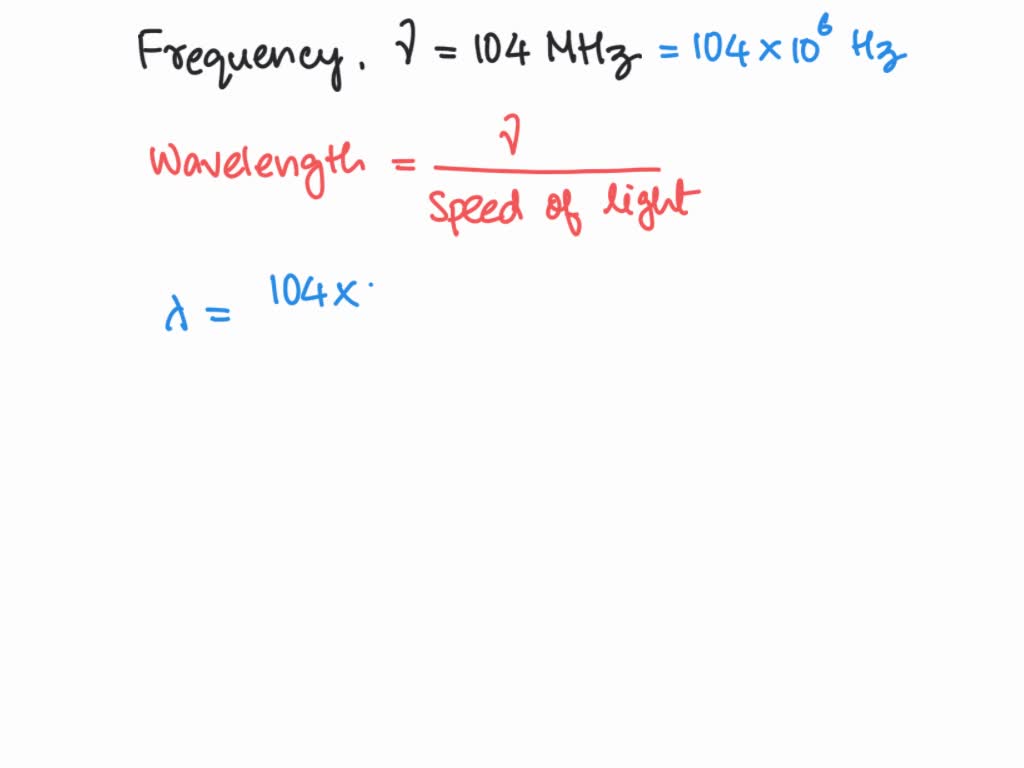 Frequency. ν = 104 MHz = 104 x 10⁶ Hz
Wavelength = ν
Speed of light
λ = 104 x